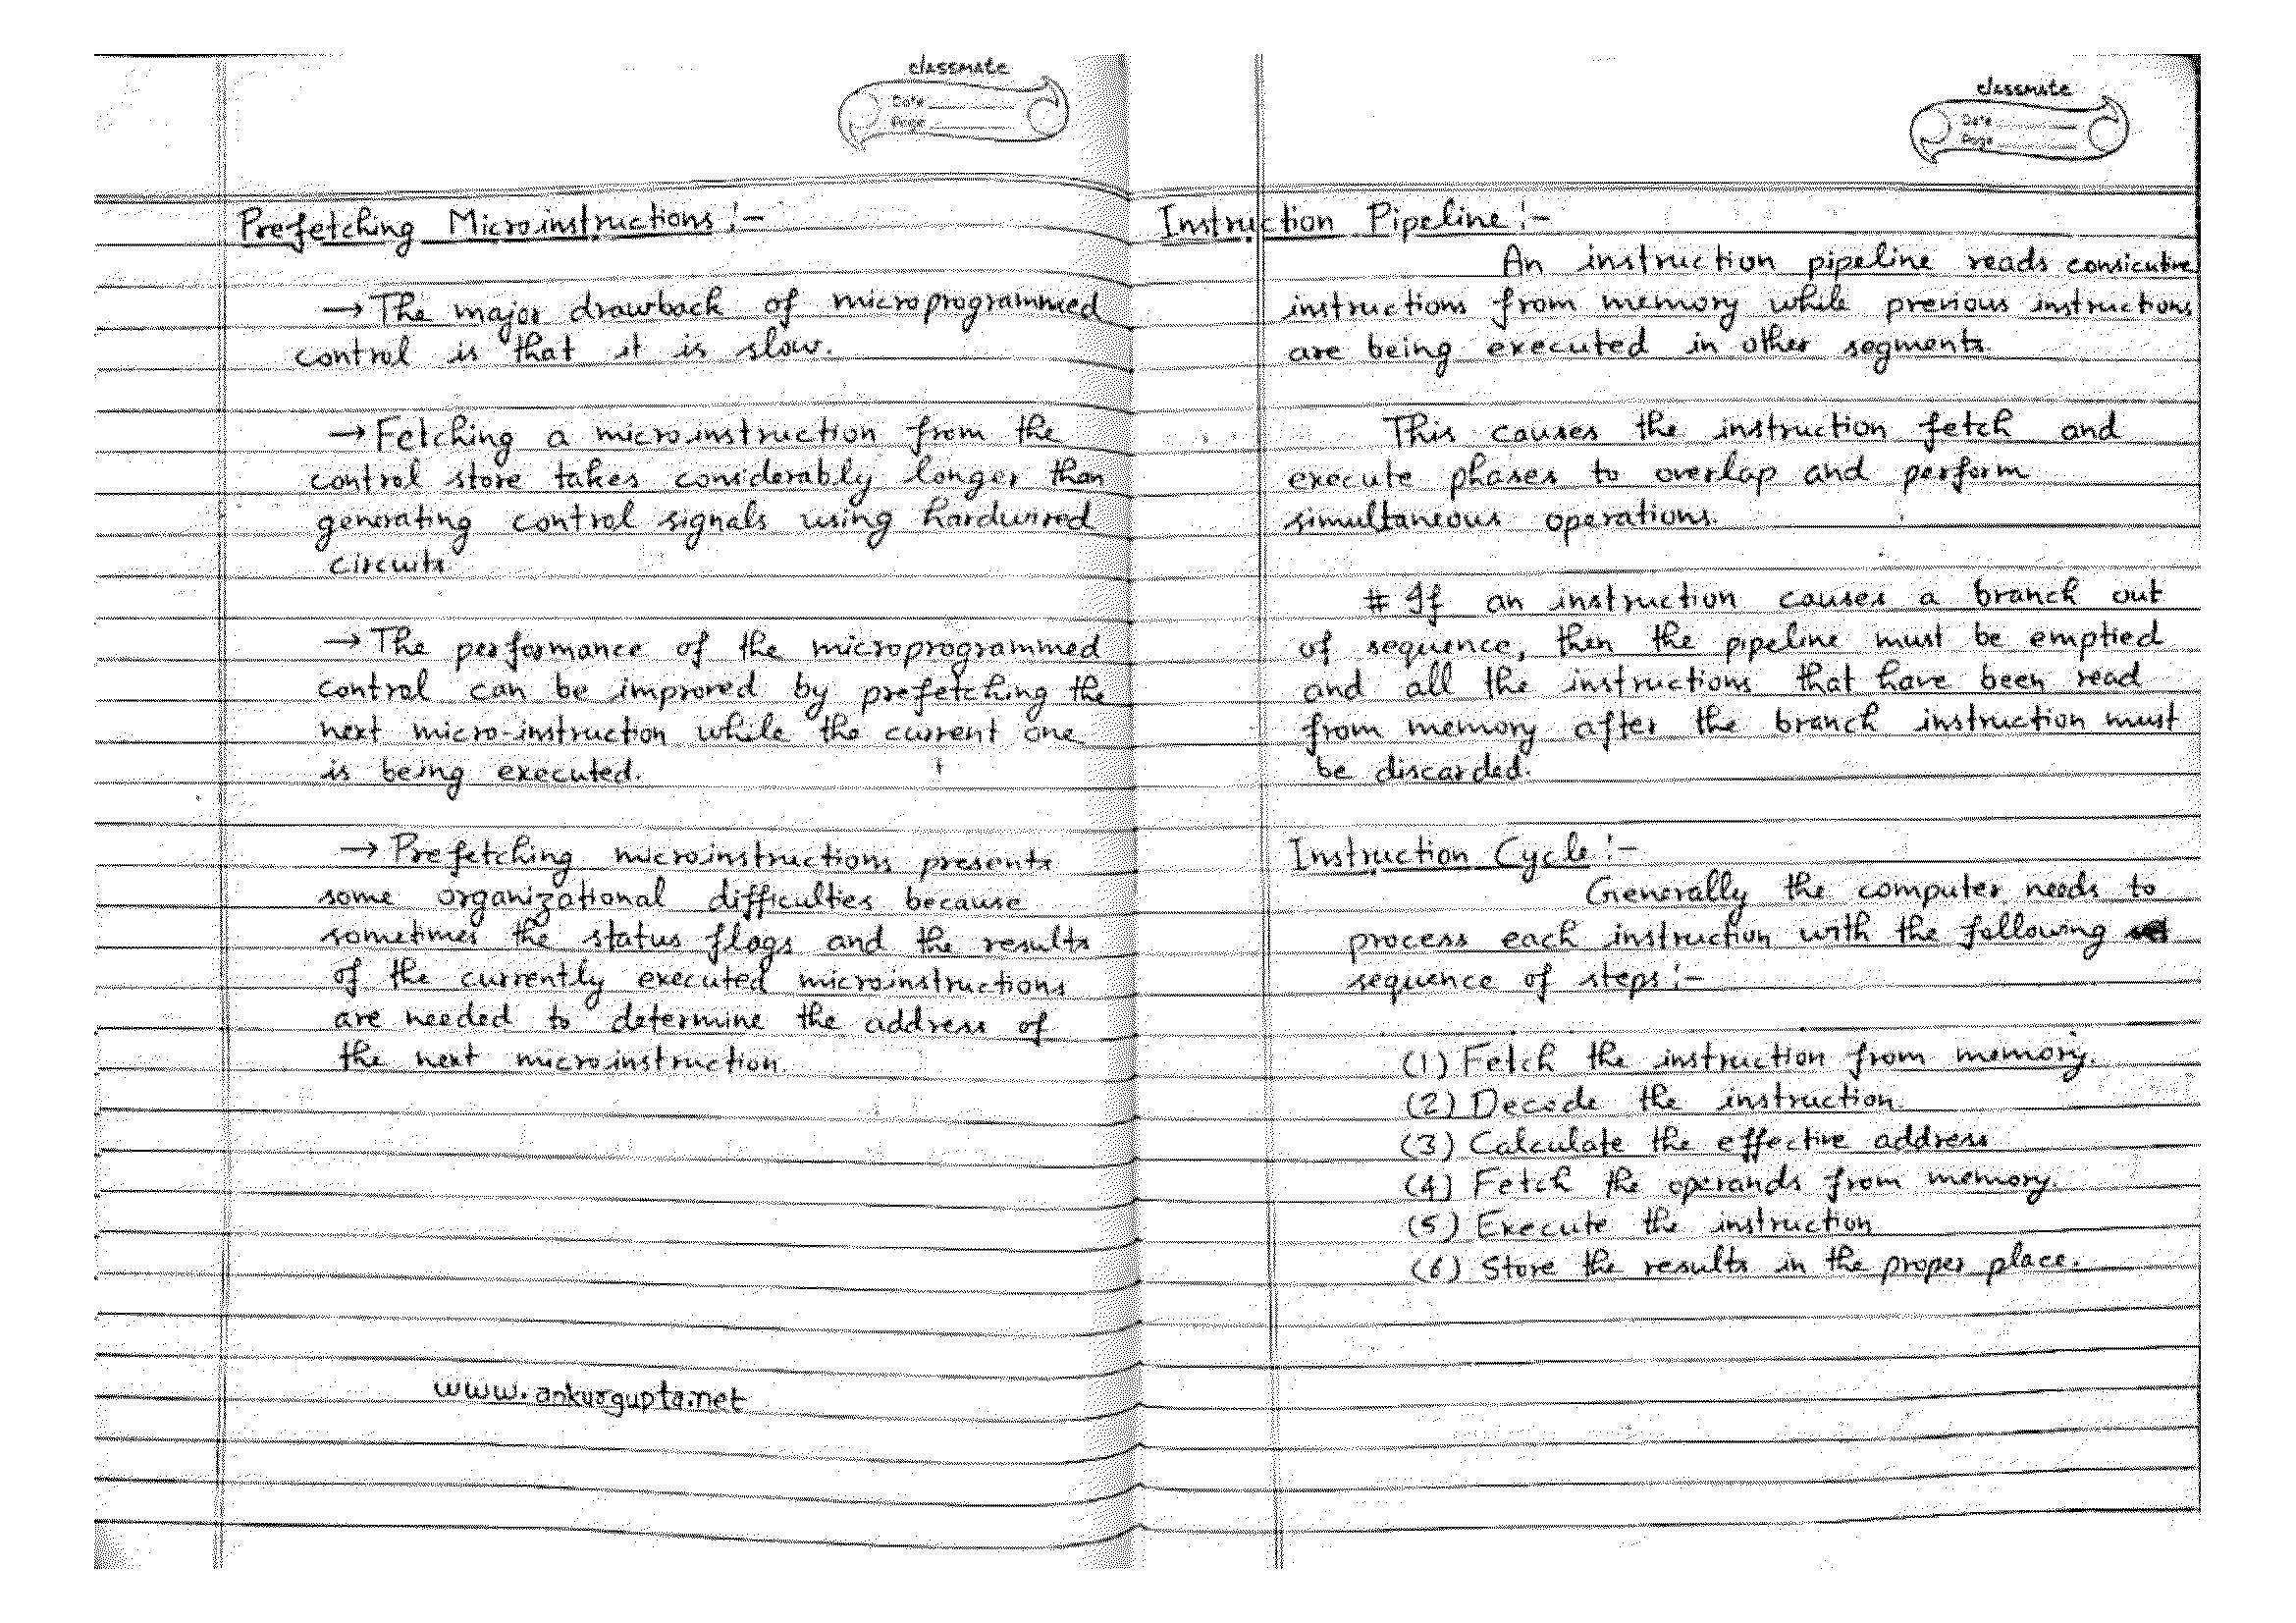 classmate
Date
Page
Prefetching Microinstructions :-
→ The major drawback of microprogrammed
control is that it is slow.
→ Fetching a microinstruction from the
control store takes considerably longer than
generating control signals using hardwired
circuits.
→ The performance of the microprogrammed
control can be improved by prefetching the
next micro-instruction while the current one
is being executed.
→ Prefetching microinstructions presents
some organizational difficulties because
sometimes the status flags and the results
of the currently executed microinstructions
are needed to determine the address of
the next microinstruction.
www.ankurgupta.net
classmate
Date
Page
Instruction Pipeline :-
An instruction pipeline reads consicutive
instructions from memory while previous instructions
are being executed in other segments.
This causes the instruction fetch and
execute phases to overlap and perform
simultaneous operations.
# If an instruction causes a branch out
of sequence, then the pipeline must be emptied
and all the instructions that have been read
from memory after the branch instruction must
be discarded.
Instruction Cycle :-
Generally the computer needs to
process each instruction with the following
sequence of steps :-
(1) Fetch the instruction from memory.
(2) Decode the instruction.
(3) Calculate the effective address
(4) Fetch the operands from memory.
(5) Execute the instruction
(6) Store the results in the proper place.